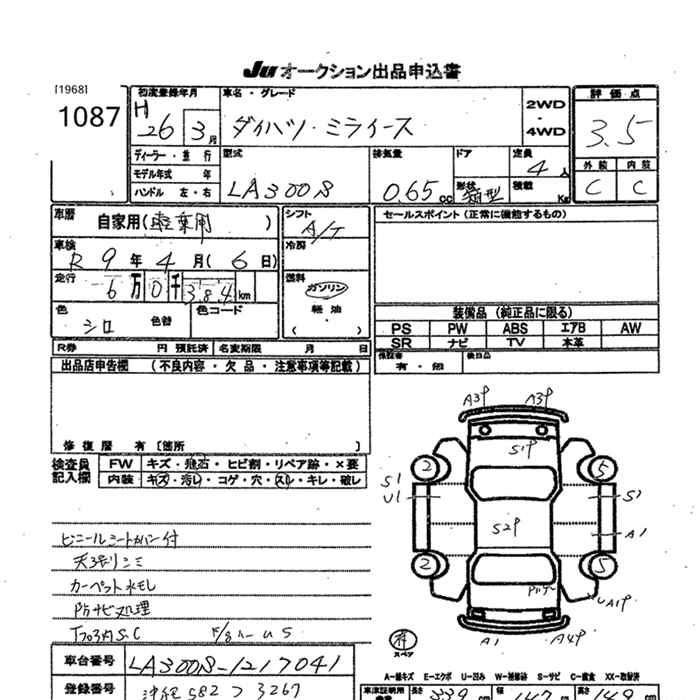 Ju オークション出品申込書
[1968]
1087
初度登録年月
H
26 3月
車名・グレード
ダイハツ・ミライース
2WD
・
4WD
評価点
3.5
外装 内装
C C
ディーラー・並行
モデル年式 年
ハンドル 左・右
型式
LA300S
排気量
0.65cc
ドア
形状
箱型
定員
4人
積載
Kg
車歴
自家用( )
車検
R 9年 4月( 6日)
走行
6万0千384km
色
シロ
色替
色コード
シフト
A/T
冷房
燃料
ガソリン
軽油
( )
セールスポイント(正常に機能するもの)
装備品(純正品に限る)
PS PW ABS エアB AW
SR ナビ TV 本革
保証書
有・無
後日品
R券 円 預託済 名変期限 月 日
出品店申告欄 (不良内容・欠品・注意事項等記載)
修復歴 有〔箇所 〕
検査員
記入欄
FW キズ・飛石・ヒビ割・リペア跡・×要
内装 キズ・汚レ・コゲ・穴・スレ・キレ・破レ
ビニールシートカバー付
天張リシミ
カーペット水モレ
Pガナビ処理
A3P A3P
S1P
2 5
S1
U1
S1
S2P
A1
2 5
UA1P
A1 A4P
スペア
A―線キズ E―エクボ U―凹み W―補修跡 S―サビ C―腐食 XX―取替済
車台番号 LA300S-1217041
登録番号 沖縄 582 つ 3267
長さ 339 幅 147 高さ 149